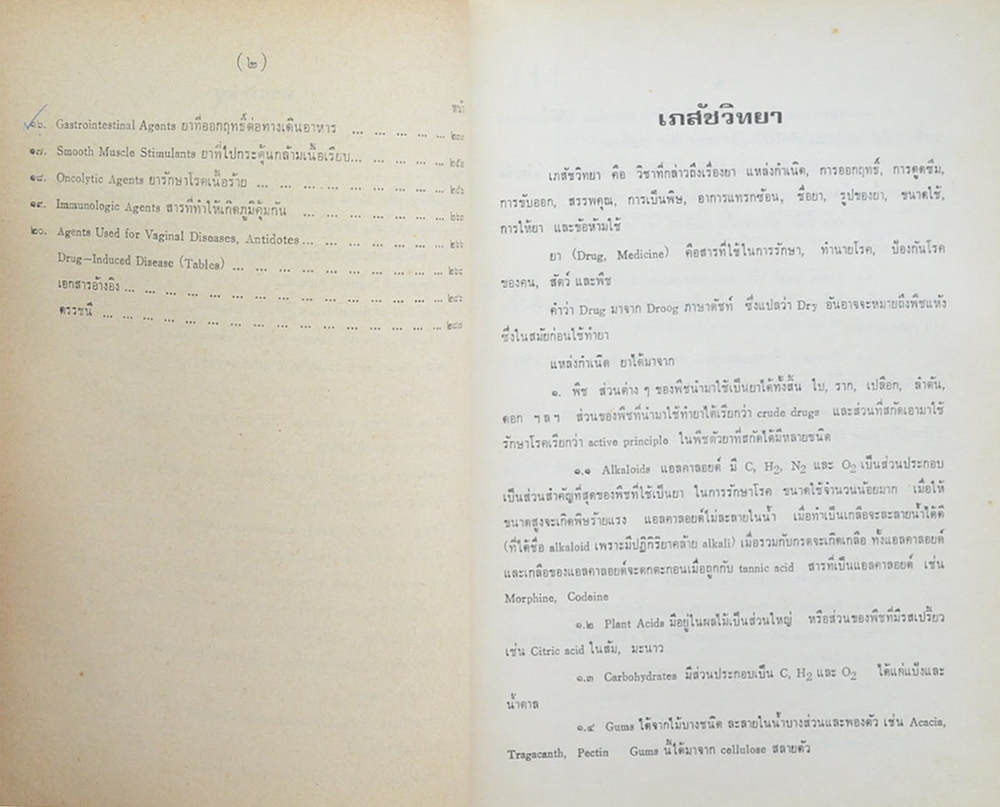 (๒)
หน้า
๑๖. Gastrointestinal Agents ยาที่ออกฤทธิ์ต่อทางเดินอาหาร ... ... ... ... ...
๑๗. Smooth Muscle Stimulants ยาที่ไปกระตุ้นกล้ามเนื้อเรียบ... ... ... ... ...
๑๘. Oncolytic Agents ยารักษาโรคเนื้อร้าย ... ... ... ... ... ... ... ...
๑๙. Immunologic Agents สารที่ทำให้เกิดภูมิคุ้มกัน ... ... ... ... ... ... ...
๒๐. Agents Used for Vaginal Diseases, Antidotes... ... ... ... ... ... ...
Drug-Induced Disease (Tables) ... ... ... ... ... ... ... ... ...
เอกสารอ้างอิง ... ... ... ... ... ... ... ... ... ... ... ... ...
ดรรชนี ... ... ... ... ... ... ... ... ... ... ... ... ... ...
เภสัชวิทยา
เภสัชวิทยา คือ วิชาที่กล่าวถึงเรื่องยา แหล่งกำเนิด, การออกฤทธิ์, การดูดซึม,
การขับออก, สรรพคุณ, การเป็นพิษ, อาการแทรกซ้อน, ชื่อยา, รูปของยา, ขนาดใช้,
การให้ยา และข้อห้ามใช้
ยา (Drug, Medicine) คือสารที่ใช้ในการรักษา, ทำนายโรค, ป้องกันโรค
ของคน, สัตว์ และพืช
คำว่า Drug มาจาก Droog ภาษาดัชท์ ซึ่งแปลว่า Dry อันอาจจะหมายถึงพืชแห้ง
ซึ่งในสมัยก่อนใช้ทำยา
แหล่งกำเนิด ยาได้มาจาก
๑. พืช ส่วนต่าง ๆ ของพืชนำมาใช้เป็นยาได้ทั้งสิ้น ใบ, ราก, เปลือก, ลำต้น,
ดอก ฯลฯ ส่วนของพืชที่นำมาใช้ทำยาได้เรียกว่า crude drugs และส่วนที่สกัดเอามาใช้
รักษาโรคเรียกว่า active principle ในพืชตัวยาที่สกัดได้มีหลายชนิด
๑.๑ Alkaloids แอลคาลอยด์ มี C, H2, N2 และ O2 เป็นส่วนประกอบ
เป็นส่วนสำคัญที่สุดของพืชที่ใช้เป็นยา ในการรักษาโรค ขนาดใช้จำนวนน้อยมาก เมื่อให้
ขนาดสูงจะเกิดพิษร้ายแรง แอลคาลอยด์ไม่ละลายในน้ำ เมื่อทำเป็นเกลือจะละลายน้ำได้ดี
(ที่ได้ชื่อ alkaloid เพราะมีปฏิกิริยาคล้าย alkali) เมื่อรวมกับกรดจะเกิดเกลือ ทั้งแอลคาลอยด์
และเกลือของแอลคาลอยด์จะตกตะกอนเมื่อถูกกับ tannic acid สารที่เป็นแอลคาลอยด์ เช่น
Morphine, Codeine
๑.๒ Plant Acids มีอยู่ในผลไม้เป็นส่วนใหญ่ หรือส่วนของพืชที่มีรสเปรี้ยว
เช่น Citric acid ในส้ม, มะนาว
๑.๓ Carbohydrates มีส่วนประกอบเป็น C, H2 และ O2 ได้แก่แป้งและ
น้ำตาล
๑.๔ Gums ได้จากไม้บางชนิด ละลายในน้ำบางส่วนและพองตัว เช่น Acacia,
Tragacanth, Pectin Gums นี้ได้มาจาก cellulose สลายตัว